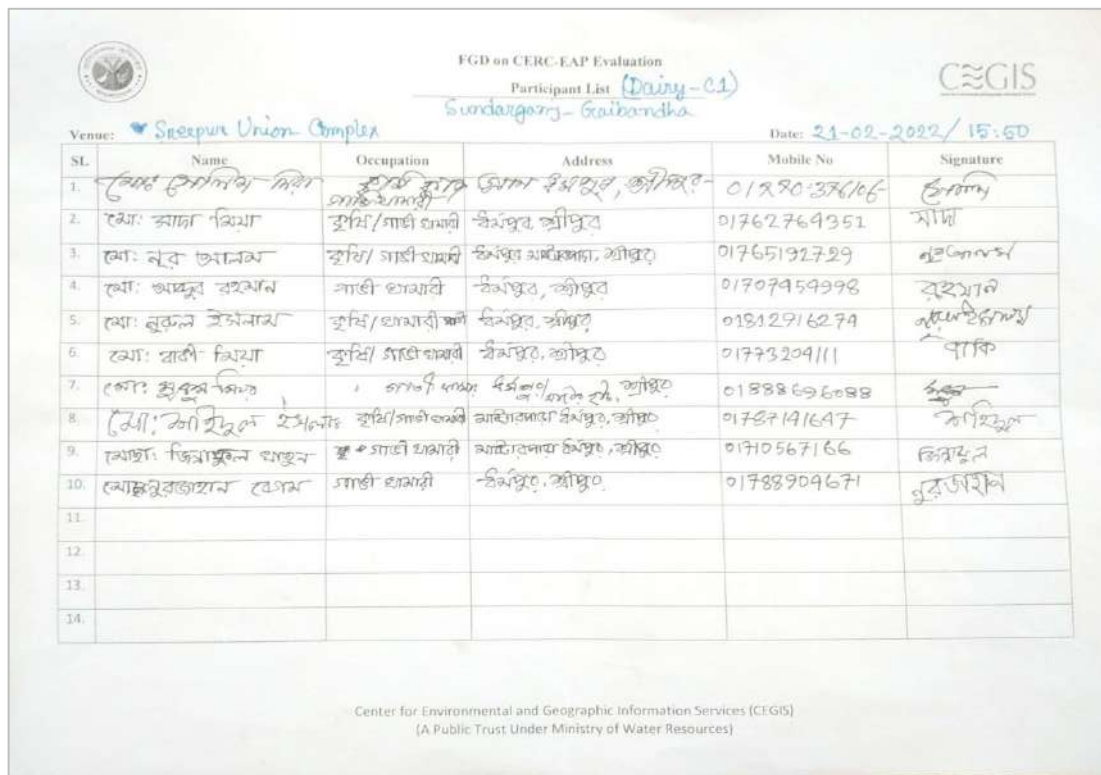 FGD on CERC-EAP Evaluation
Participant List (Dairy-C1)
Sundarganj-Gaibandha
CEGIS
Venue: Sreepur Union Complex Date: 21-02-2022/ 15:50
SL Name Occupation Address Mobile No Signature
1. মোঃ মিয়া
2. মো: সাদা মিয়া কৃষি/গাভী খামারী ধর্মপুর শ্রীপুর 01762764351 সাদা
3. মো: নুর আলম কৃষি/ গাভী খামারী ধর্মপুর শ্রীপুর 01765192729
4. মো: আব্দুর রহমান গাভী খামারী ধর্মপুর, শ্রীপুর 01707454998 রহমান
5. মো: নুরুল ইসলাম কৃষি/খামারী ধর্মপুর, শ্রীপুর 01812916274
6. মো: বাকী মিয়া কৃষি/ গাভী খামারী ধর্মপুর, শ্রীপুর 01773204111 বাকি
7. মো: মিয়া গাভী শ্রীপুর 01888696088
8. মো: ইসলাম কৃষি/গাভী খামারী মাস্টারপাড়া ধর্মপুর, শ্রীপুর 01787141647
9. মোছা: খাতুন গাভী খামারী মাস্টারপাড়া ধর্মপুর, শ্রীপুর 01710567166
10. নুরজাহান বেগম গাভী খামারী ধর্মপুর, শ্রীপুর 01788904671 নুরজাহান
11.
12.
13.
14.
Center for Environmental and Geographic Information Services (CEGIS)
(A Public Trust Under Ministry of Water Resources)